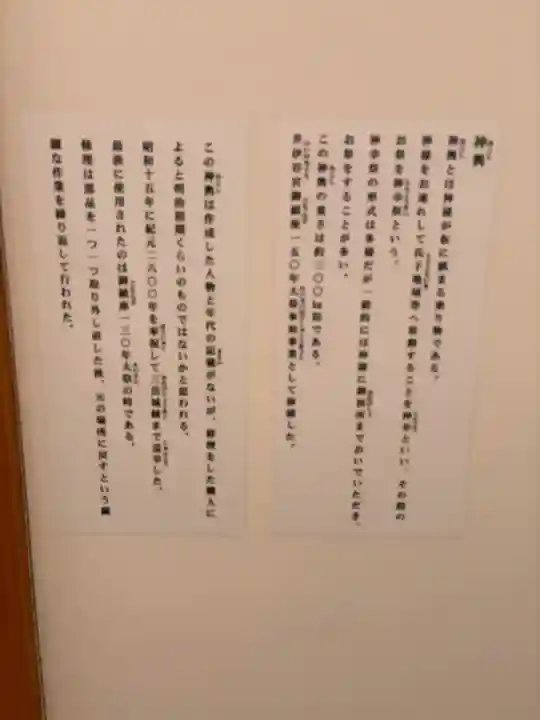 神輿
神輿とは神様が仮に鎮まる乗り物である。
神様をお遷れして氏子地域等へ移動することを神幸といい、その際の
お祭を神幸祭という。
神幸祭の形式は多様だが一般的には神輿に御旅所までおいでいただき、
お祭をすることが多い。
この神輿の重さは約三〇〇kg程である。
井伊谷宮御鎮座一五〇年大祭事業として修繕した。
この神輿は作成した人物と年代の記録がないが、修理をした職人に
よると明治初期くらいのものではないかと思われる。
昭和十五年に紀元二六〇〇年を奉祝して三岳城跡まで巡幸した。
最後に使用されたのは御鎮座一三〇年大祭の時である。
修理は部品を一つ一つ取り外し直した後、元の場所に戻すという繊
細な作業を繰り返して行われた。